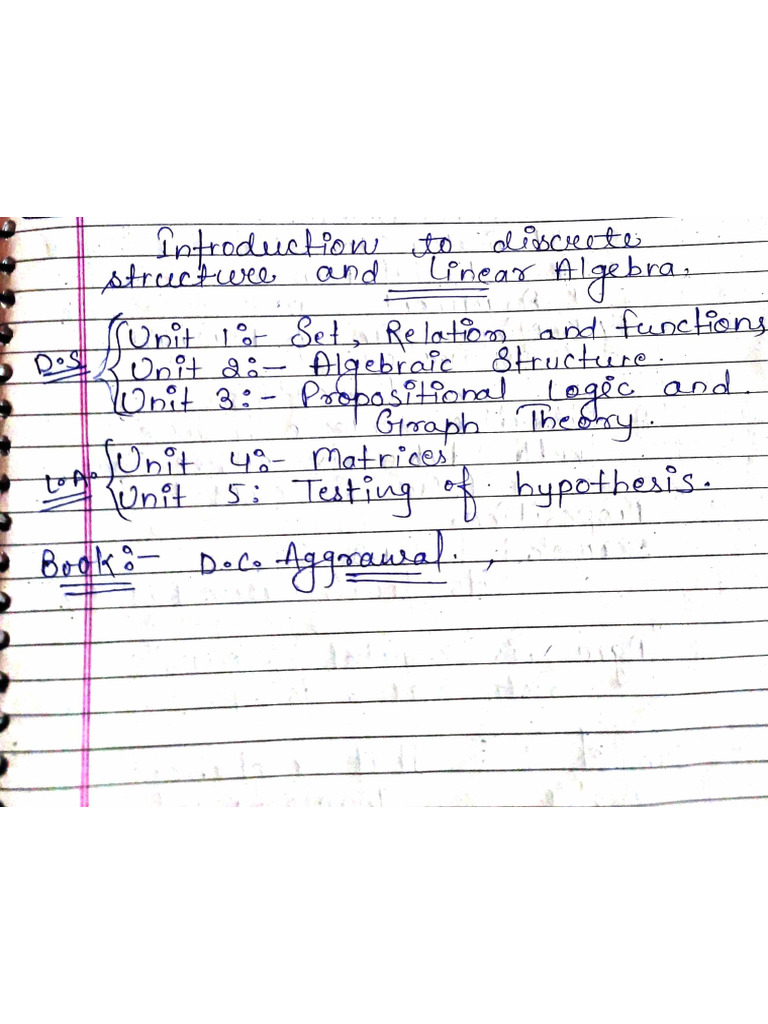 Introduction to discrete
structure and Linear Algebra.
Unit 1:- Set, Relation and functions
D.S. Unit 2:- Algebraic Structure.
Unit 3:- Propositional Logic and
Graph Theory.
Unit 4:- Matrices
L.A. Unit 5: Testing of hypothesis.
Book:- D.C. Aggrawal. ,